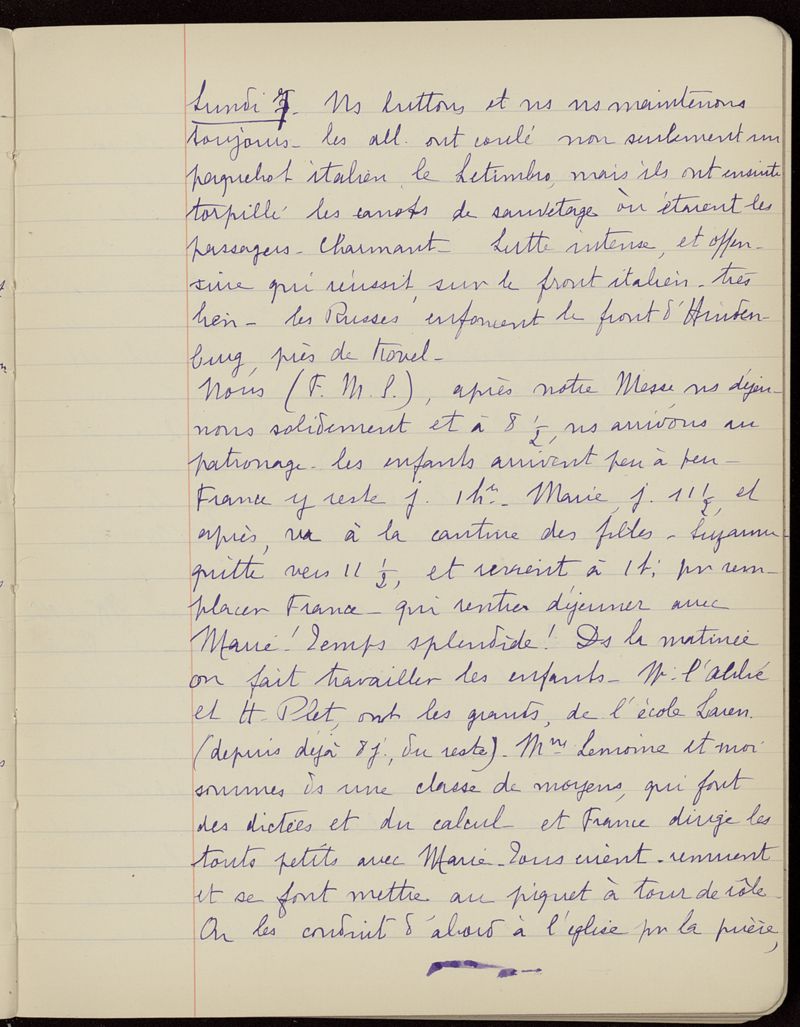 Lundi 7. Ns luttons et ns ns maintenons
toujours – les all. ont coulé non seulement un
paquebot italien, le Letimbro, mais ils ont ensuite
torpillé les canots de sauvetage où étaient les
passagers – Charmant – Lutte intense, et offen-
sive qui réussit, sur le front italien – très
bien – les Russes enfoncent le front d'Hinden-
burg, près de Kovel –
Nous (F. M. S.), après notre Messe, ns déjeu-
nons solidement et à 8 ½, ns arrivons au
patronage – les enfants arrivent peu à peu –
France y reste j. 1h – Marie, j. 11 ½, et
après, va à la cantine des filles – Suzanne
quitte vers 11 ½, et revient à 1h pr rem-
placer France – qui rentre déjeuner avec
Marie ! Temps splendide ! Ds la matinée
on fait travailler les enfants – Mr l'abbé
et H. Plet, ont les grands, de l'école
(depuis déjà 8 j., du reste) – Mme Lemoine et moi
sommes ds une classe de moyens, qui font
des dictées et du calcul – et France dirige les
touts petits avec Marie – Tous crient – remuent
et se font mettre au piquet à tour de rôle –
On les conduit d'abord à l'église pr la prière,